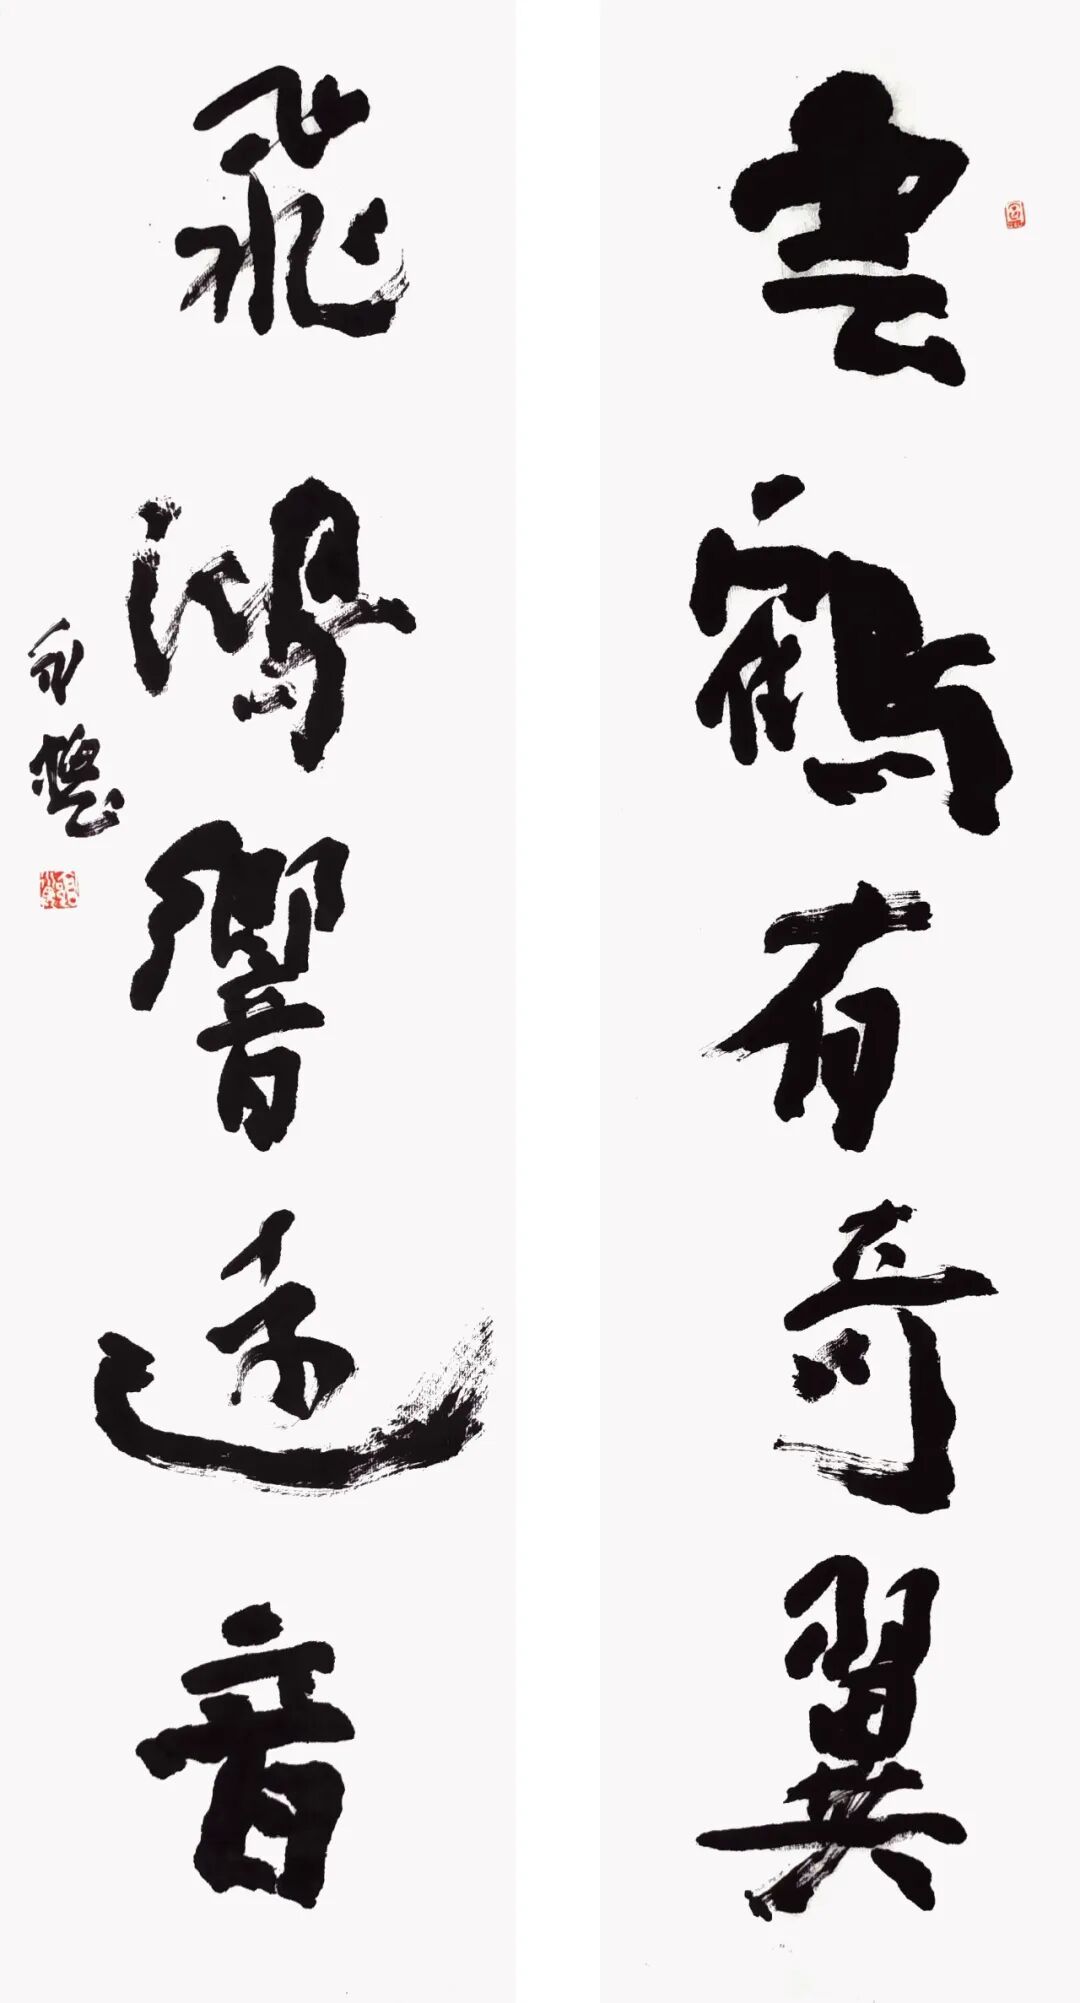 雲鶴有奇翼
飛鴻響遠音